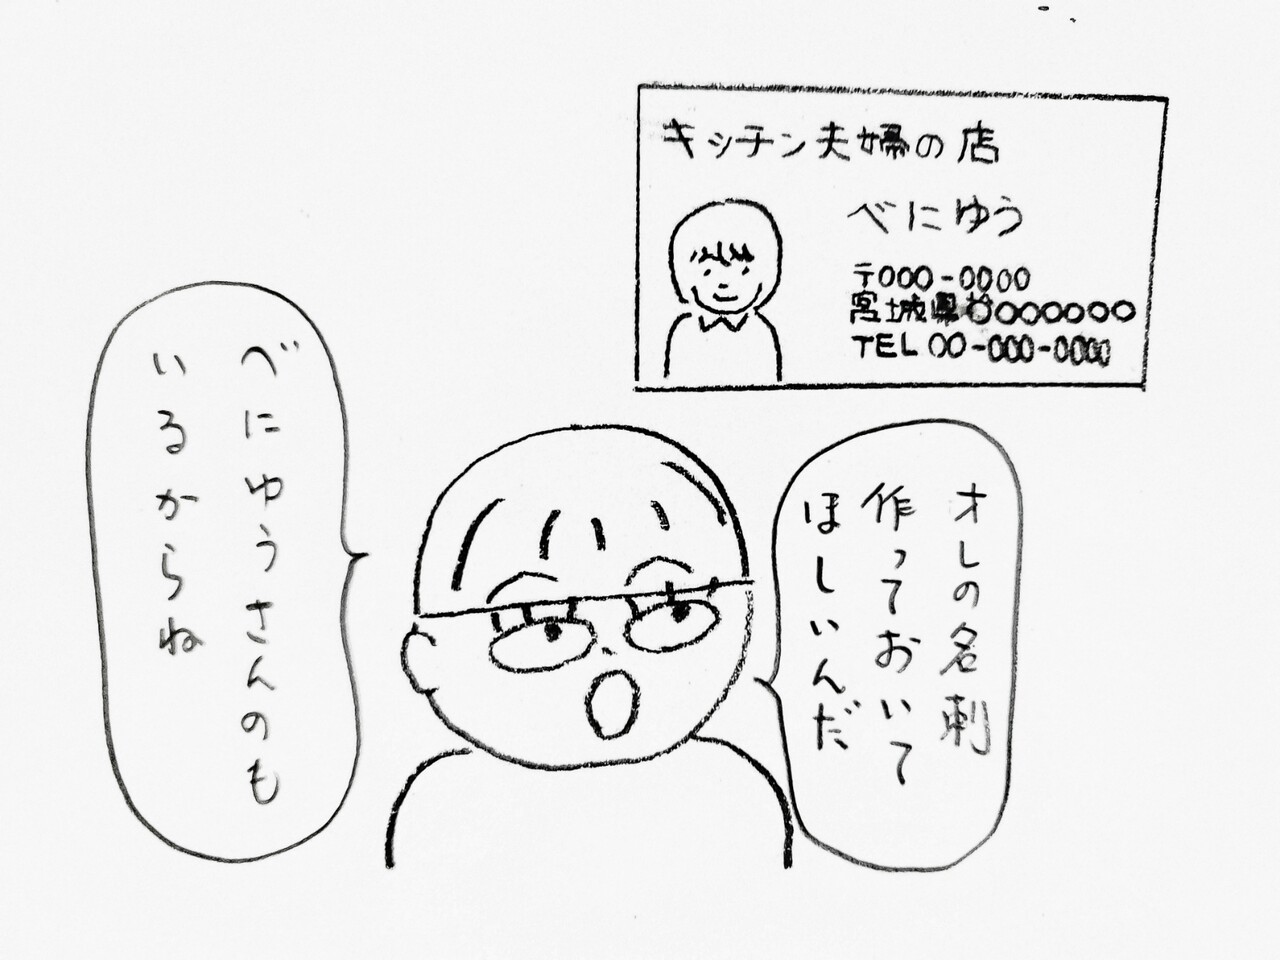 キッチン夫婦の店
べにゆう
〒000-0000
宮城県○○○○○○○
TEL 00-000-0000
オレの名刺
作っておいて
ほしいんだ
べにゆうさんのも
いるからね